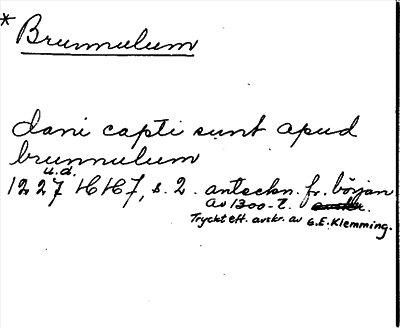 * Brunnulum
dani capti sunt apud
brunnulum
u.d.
1227 HH 7, s. 2. anteckn. fr. början
av 1300-t.
Tryckt eft. avskr. av G.E. Klemming.